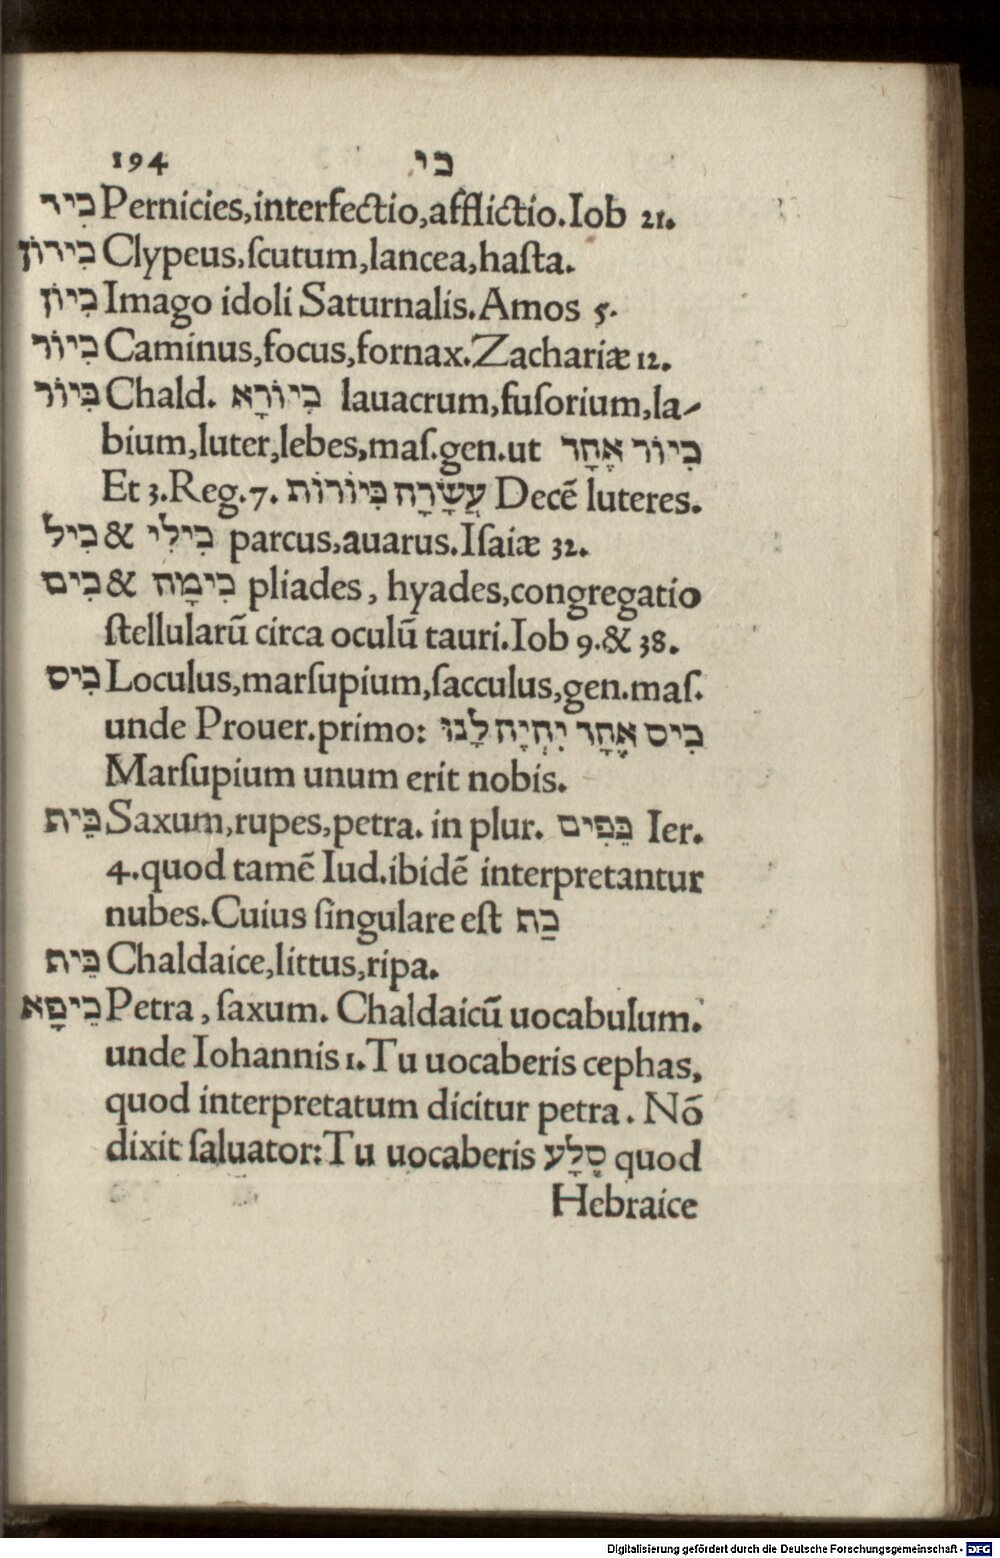 194 כי
כִיד Pernicies,interfectio,afflictio.Iob 21.
כִידוֹן Clypeus,ſcutum,lancea,haſta.
כִיוֹן Imago idoli Saturnalis.Amos 5.
כִיוֹר Caminus,focus,fornax.Zachariæ 12.
כִּיוֹר Chald. כִיוֹרָא lauacrum,fuſorium,la-
bium,luter,lebes,maſ.gen.ut כִיוֹר אֶחָד
Et 3.Reg.7. עֲשָׂרָה כִּיוֹרוֹת Decẽ luteres.
כִיל & כִילִי parcus,auarus.Iſaiæ 32.
כִים & כִימָה pliades, hyades,congregatio
ſtellularũ circa oculũ tauri.Iob 9.& 38.
כִיס Loculus,marſupium,ſacculus,gen.maſ.
unde Prouer.primo: כִיס אֶחָד יִהְיֶה לָנוּ
Marſupium unum erit nobis.
כֵּיף Saxum,rupes,petra. in plur. כֵּפִים Ier.
4.quod tamẽ Iud.ibidẽ interpretantur
nubes.Cuius ſingulare eſt כַף
כֵּיף Chaldaice,littus,ripa.
כֵיפָא Petra, ſaxum. Chaldaicũ uocabulum.
unde Iohannis 1.Tu uocaberis cephas,
quod interpretatum dicitur petra. Nõ
dixit ſaluator:Tu uocaberis סֶלָע quod
Hebraice
Digitalisierung gefördert durch die Deutsche Forschungsgemeinschaft - DFG